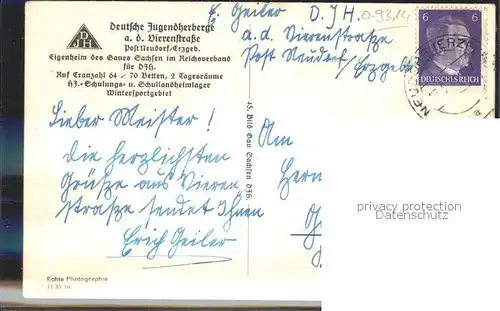 D
J H
Deutsche Jugendherberge
a. d. Vierenstraße
Post Neudorf/Erzgeb.
Eigenheim des Gaues Sachsen im Reichsverband
für DJH.
Ruf Cranzahl 64 / 70 Betten, 2 Tagesräume
HJ.-Schulungs- u. Schullandheimlager
Wintersportgebiet
E. Geiler D. J. H. 0-9314
a. d. Vierenstrasze
Post Neudorf/Erzgeb.
6 6
DEUTSCHES REICH
Lieber Meister!
Die herzlichsten
Grüsze aus Vieren
strasze sendet Ihnen
Erich Geiler
Echte Photographie
45. Bild Gau Sachsen DJH.
Am
Herrn
privacy protection
Datenschutz